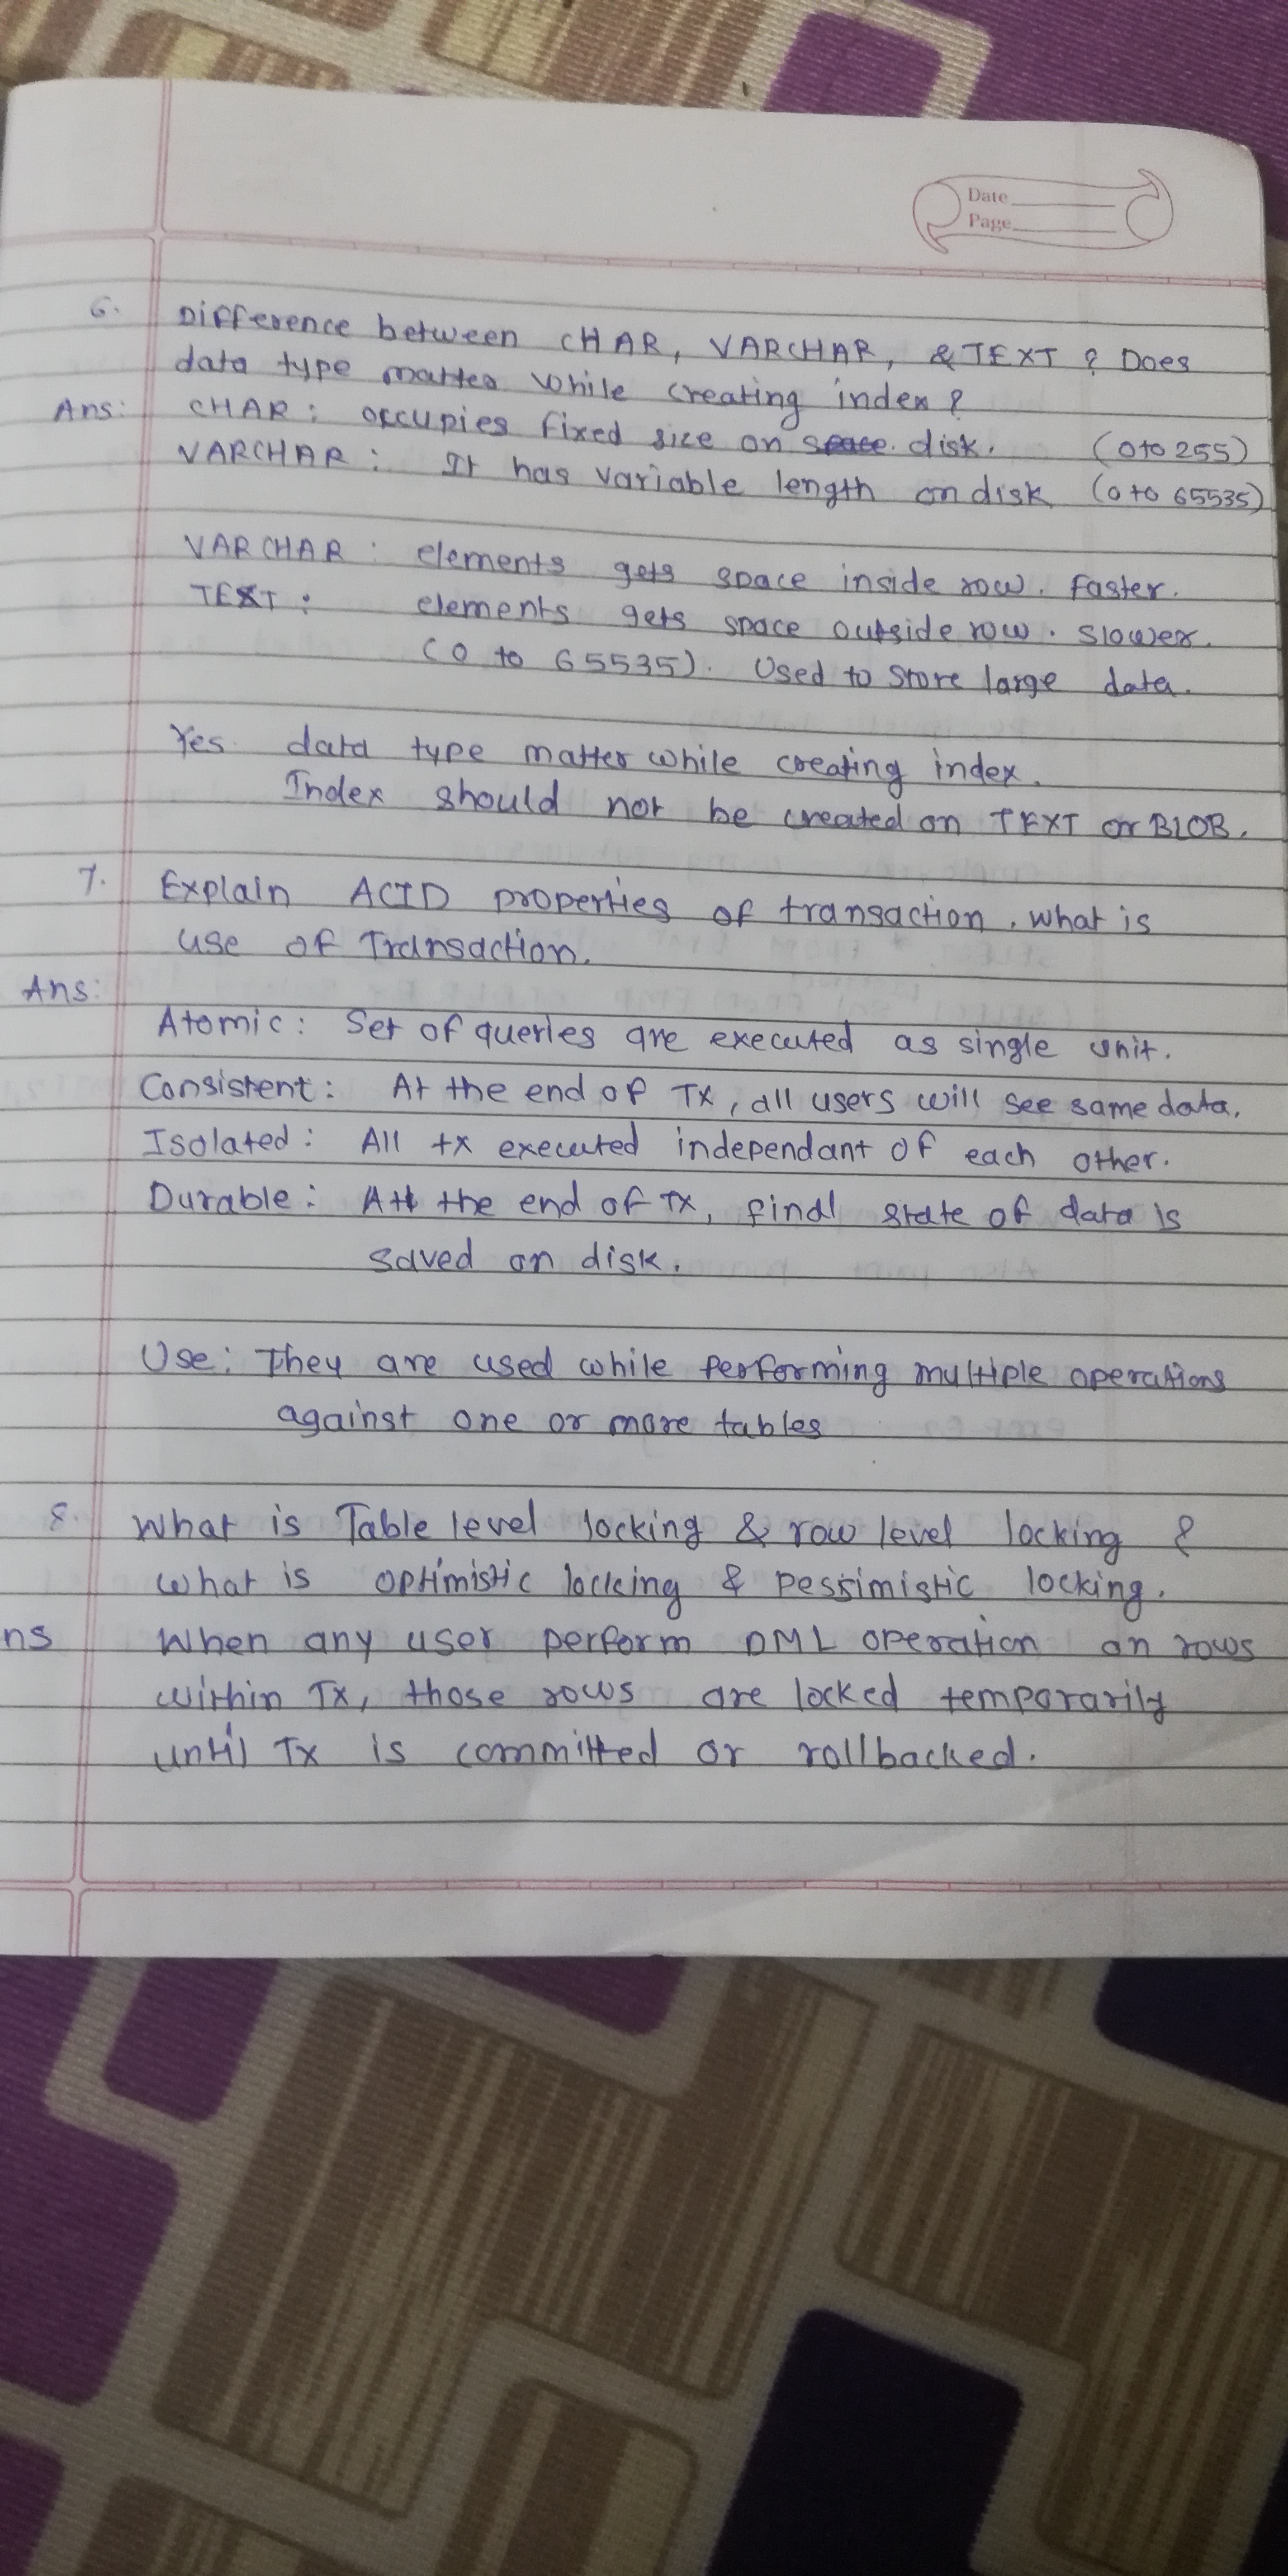 Date
Page
6. Difference between CHAR, VARCHAR, & TEXT ? Does
data type matter while creating index ?
Ans: CHAR : occupies fixed size on space. disk. (0 to 255)
VARCHAR : It has variable length on disk (0 to 65535)
VARCHAR : elements gets space inside row. Faster.
TEXT : elements gets space outside row. slower.
(0 to 65535). Used to store large data.
Yes. data type matter while creating index.
Index should not be created on TEXT or BLOB.
7. Explain ACID properties of transaction. what is
use of Transaction.
Ans:
Atomic : Set of queries are executed as single unit.
Consistent : At the end of Tx, all users will see same data.
Isolated : All tx executed independant of each other.
Durable : At the end of Tx, final state of data is
saved on disk.
Use : They are used while performing multiple operations
against one or more tables
8. What is Table level locking & row level locking ?
what is optimistic locking & pessimistic locking.
ns When any user perform DML operation on rows
within Tx, those rows are locked temporarily
until Tx is committed or rollbacked.